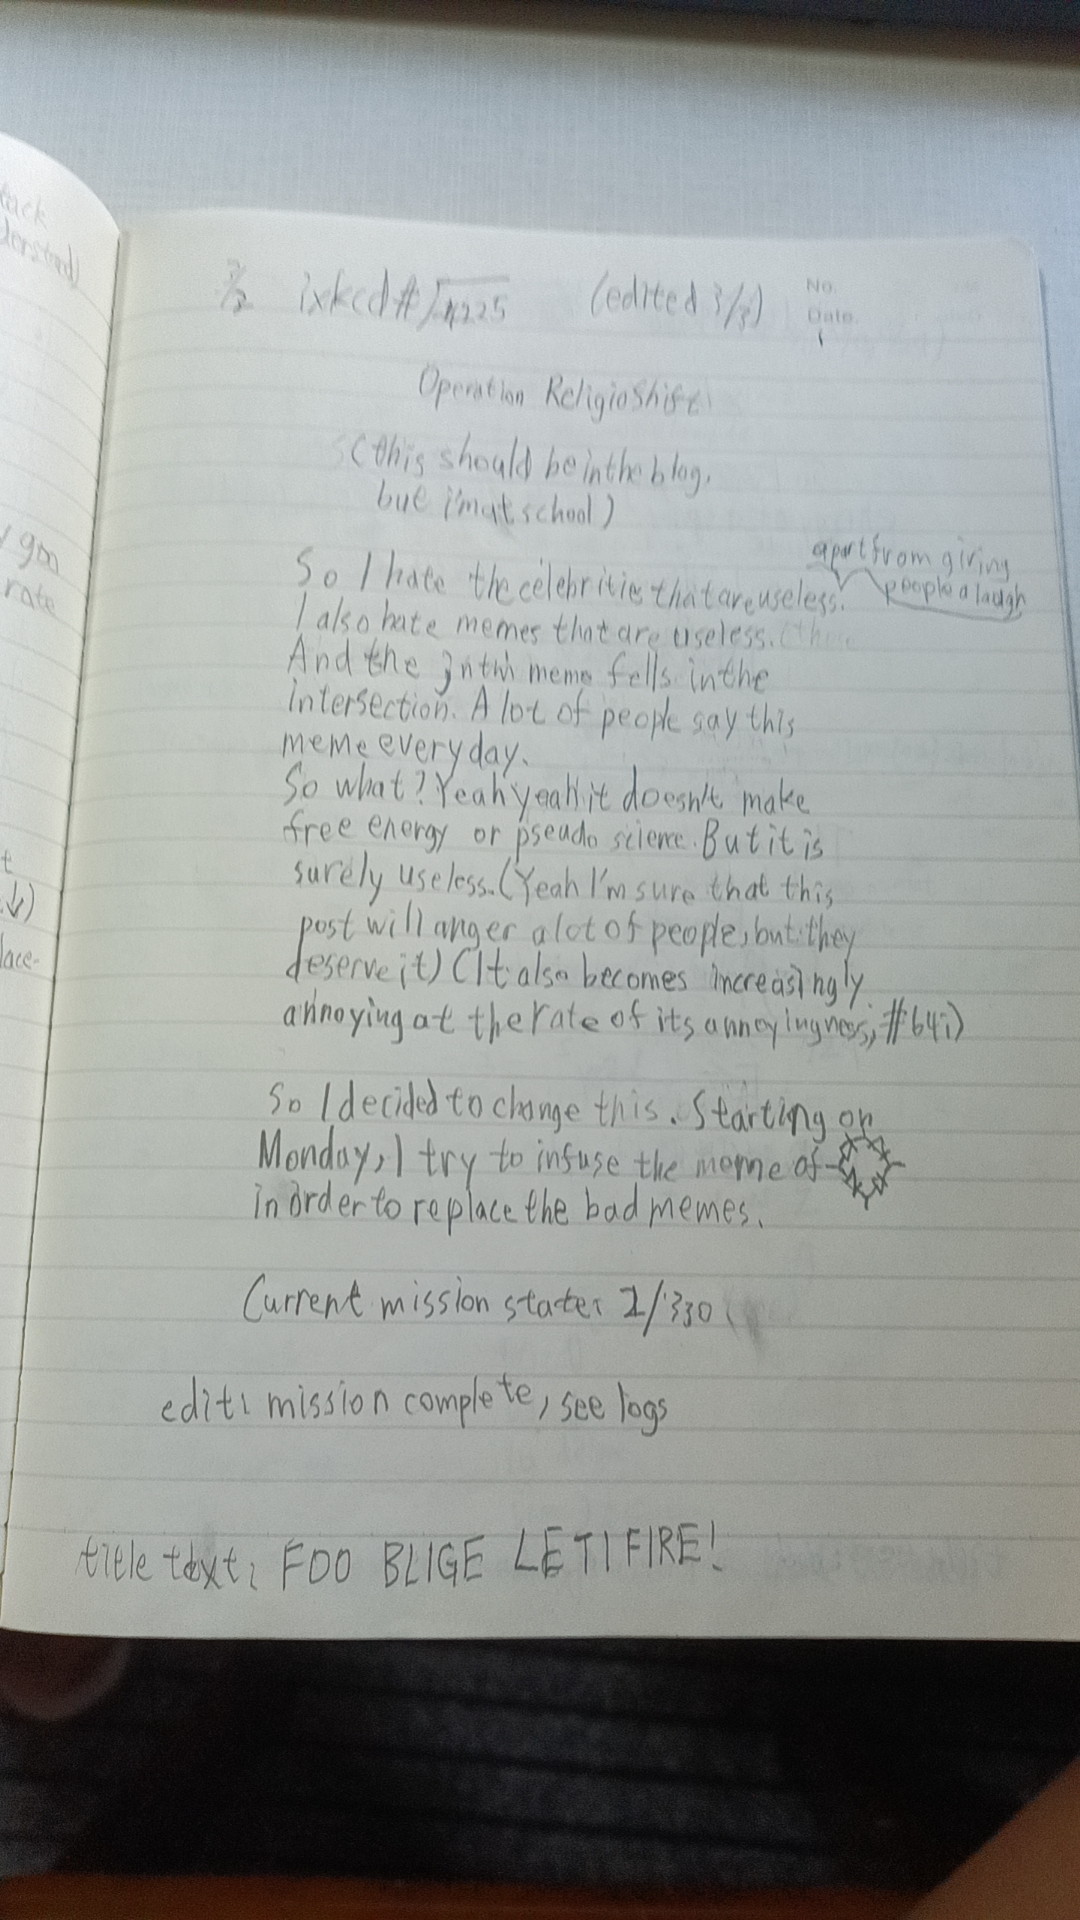 tack
derstand)
gon
rate
t
↓)
lace-
ixkcd #√4225 (edited 3/3) No.
Date
Operation Religioshift
(this should be in the blog,
but i'm at school)
apart from giving
people a laugh
So I hate the celebrities that are useless.
I also hate memes that are useless.
And the meme fells in the
intersection. A lot of people say this
meme everyday.
So what? Yeah yeah it doesn't make
free energy or pseudo science. But it is
surely useless. (Yeah I'm sure that this
post will anger a lot of people, but they
deserve it) (It also becomes increasingly
annoying at the rate of its annoyingness, #64i)
So I decided to change this. Starting on
Monday, I try to infuse the meme of
in order to replace the bad memes.
Current mission state: 2/330
edit: mission complete, see logs
title text: FOO BLIGE LETI FIRE!